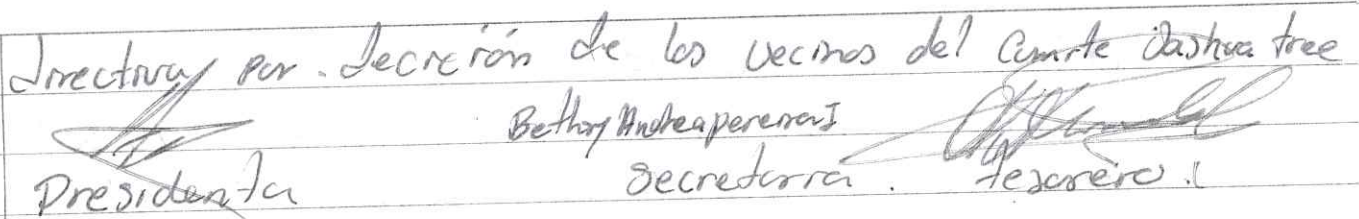 Directiva por decición de los vecinos del Comite Joshua tree
Bethzy Andrea pererra I
Presidenta Secretaria. tesorero.